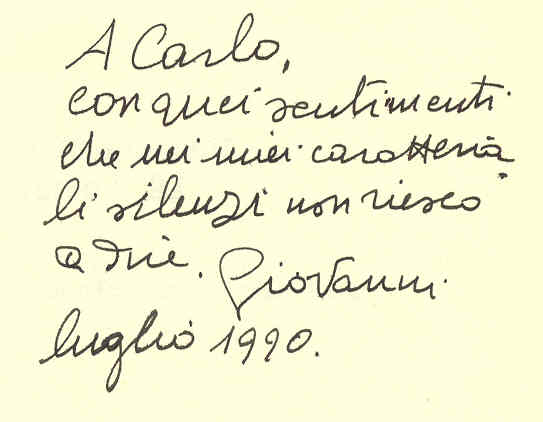 A Carlo,
con quei sentimenti
che nei miei caratteria
li silenzi non riesco
a dire. Giovanni
luglio 1990.